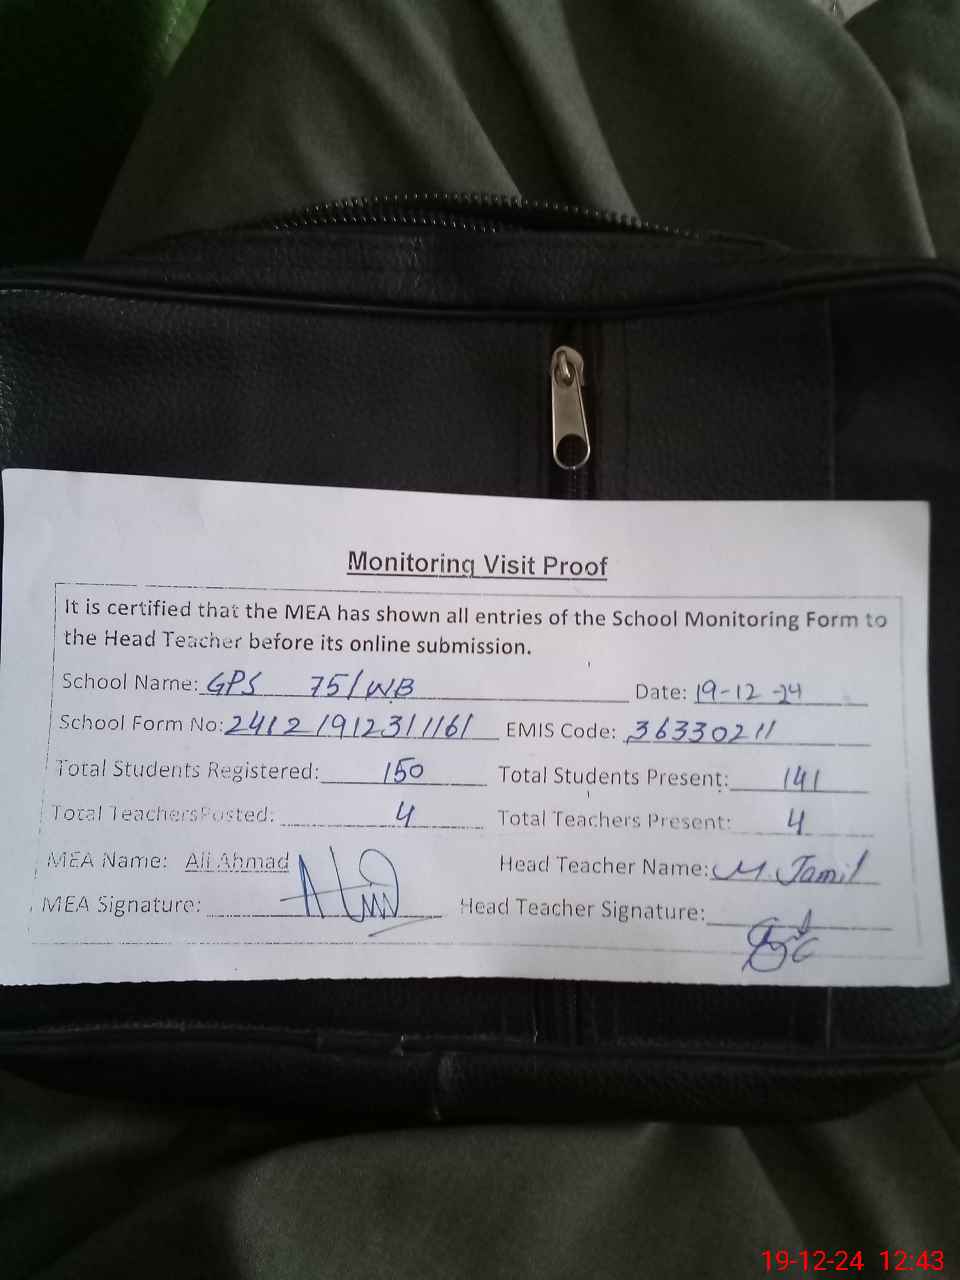 Monitoring Visit Proof
It is certified that the MEA has shown all entries of the School Monitoring Form to
the Head Teacher before its online submission.
School Name: GPS 75/WB Date: 19-12-24
School Form No: 24121912311161 EMIS Code: 36330211
Total Students Registered: 150 Total Students Present: 141
Total TeachersPosted: 4 Total Teachers Present: 4
MEA Name: Ali Ahmad Head Teacher Name: M. Jamil
MEA Signature: Head Teacher Signature:
19-12-24 12:43